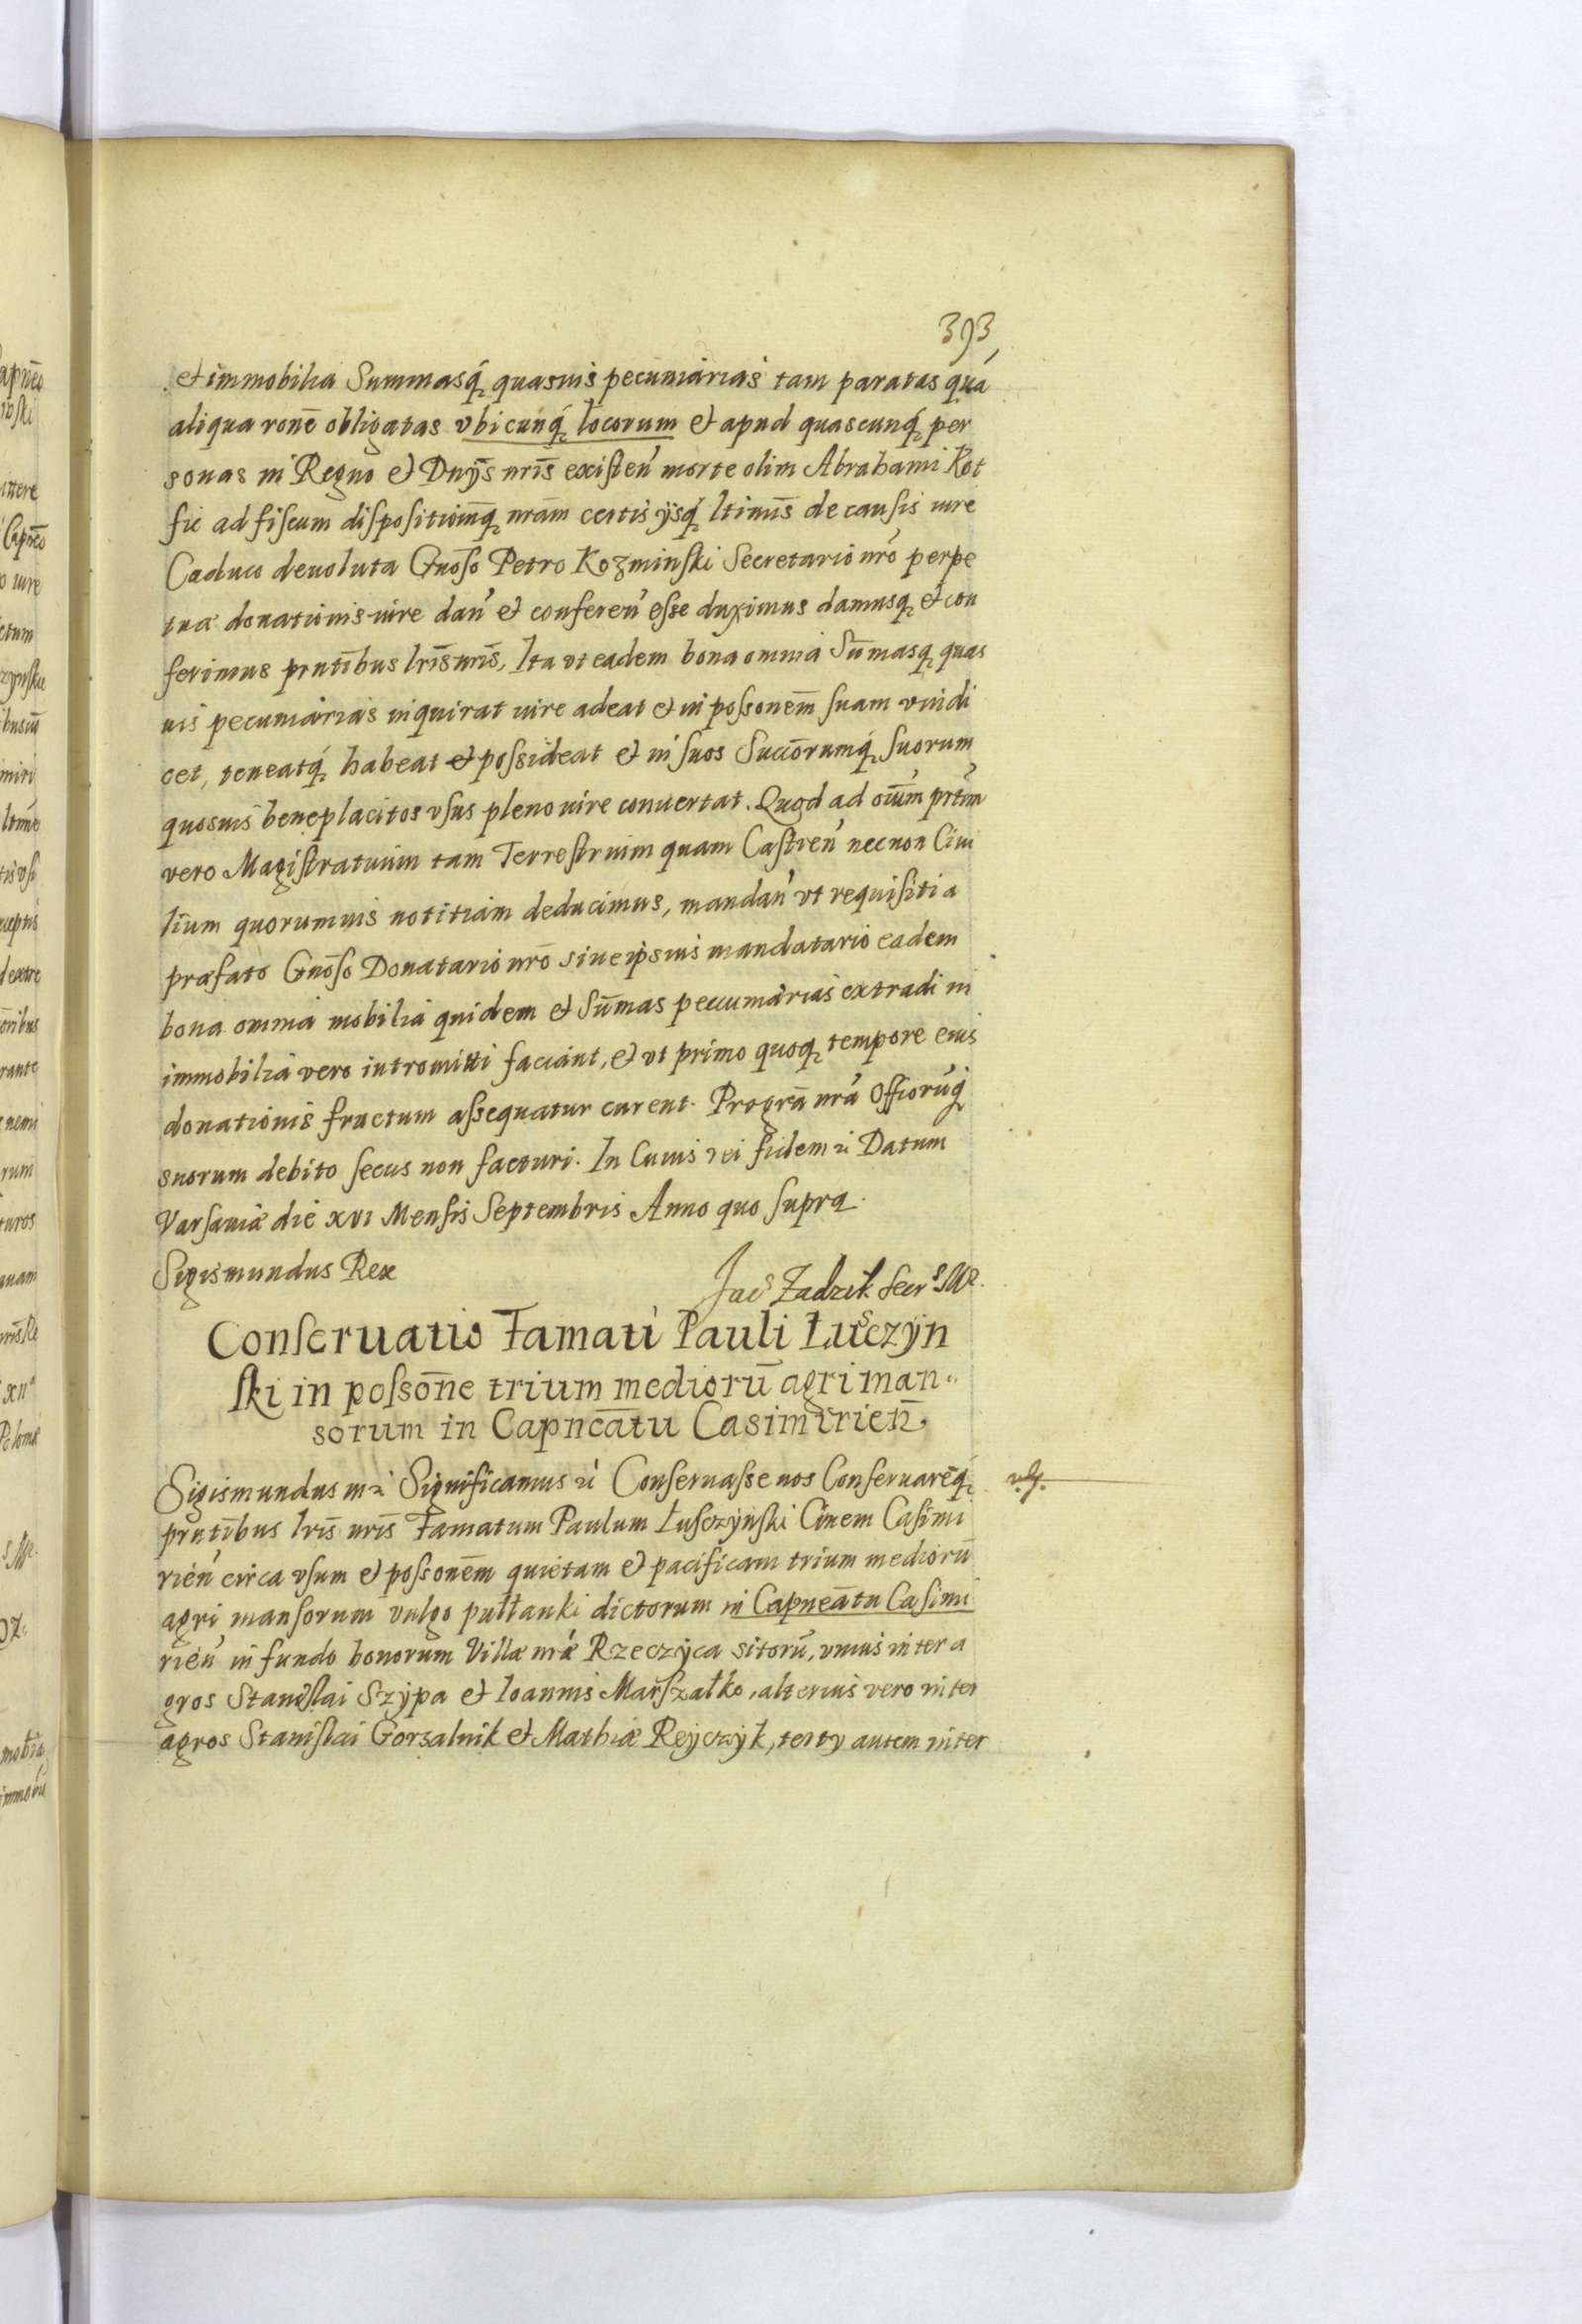 393
et immobilia Summasq́ quasuis pecuniarias tam paratas quá
aliqua ronē obligatas vbicunq́ locorum et apud quascunq́ per
sonas in Regno et Dnӱs nrīs existen̕ morte olim Abrahami Kot
fic ad fiscum dispositionq̄ nrām certis ӱsq́ ltimīs de causis iure
Caduco deuoluta Gnōso Petro Kozminski Secretario nrō perpe
tuæ donationis iure dan̕ et conferen̕ esse duximus damusq́ et con
ferimus prntībus lrīs nrīs, Ita vt eadem bona omnia Sūmasq́ quas
uis pecuniarias inquirat iure adeat et in possonēm suam vindi
cet, teneatq́ habeat et possideat et in suos Succōrumq́ suorum
quosuis beneplacitos vsus pleno iure conuertat. Quod ad oīum prtim̄
vero Magistratuum tam Terrestrium quam Castren̕ necnon Ciui
lium quorumuis notitiam deducimus, mandan̕ vt requisiti a
præfato Gnōso Donatario nrō siue ipsius mandatario eadem
bona omnia mobilia quidem et Sūmas pecuniarias extradi in
immobilia vero intromitti faciant, et vt primo quoq́ tempore eius
donationis fructum assequatur curent. Progrā nrā Officorūq́
suorum debito secus non facturi. In Cuius rei fidem ꝛc Datum
Varsauiæ die XVI Mensis Septembris Anno quo supra.
Sigismundus Rex
Jacs Zadzik Secr S M R.
Conseruatio Famati Pauli Łusczӱn
ski in possōne trium mediorū agri man„
sorum in Capnēatu Casimirien̄.
Sigismundus III ꝛc Significamus ꝛc Conseruasse nos Conseruarēq́
prntībus lrīs nrīs Famatum Paulum Łusczӱnski Ciuem Casimi
rien̕ circa vsum et possonēm quietam et pacificam trium mediorū
agri mansorum vulgo pułłanki dictorum in Capneātu Casimi
rien̕ in fundo bonorum Villæ nrǣ Rzeczӱca sitorū, vnius inter a
gros Stanislai Szӱpa et Ioannis Marszałko, alterius vero inter
agros Stanislai Gorzalnik et Mathiæ Reӱczӱk, tertӱ autem inter